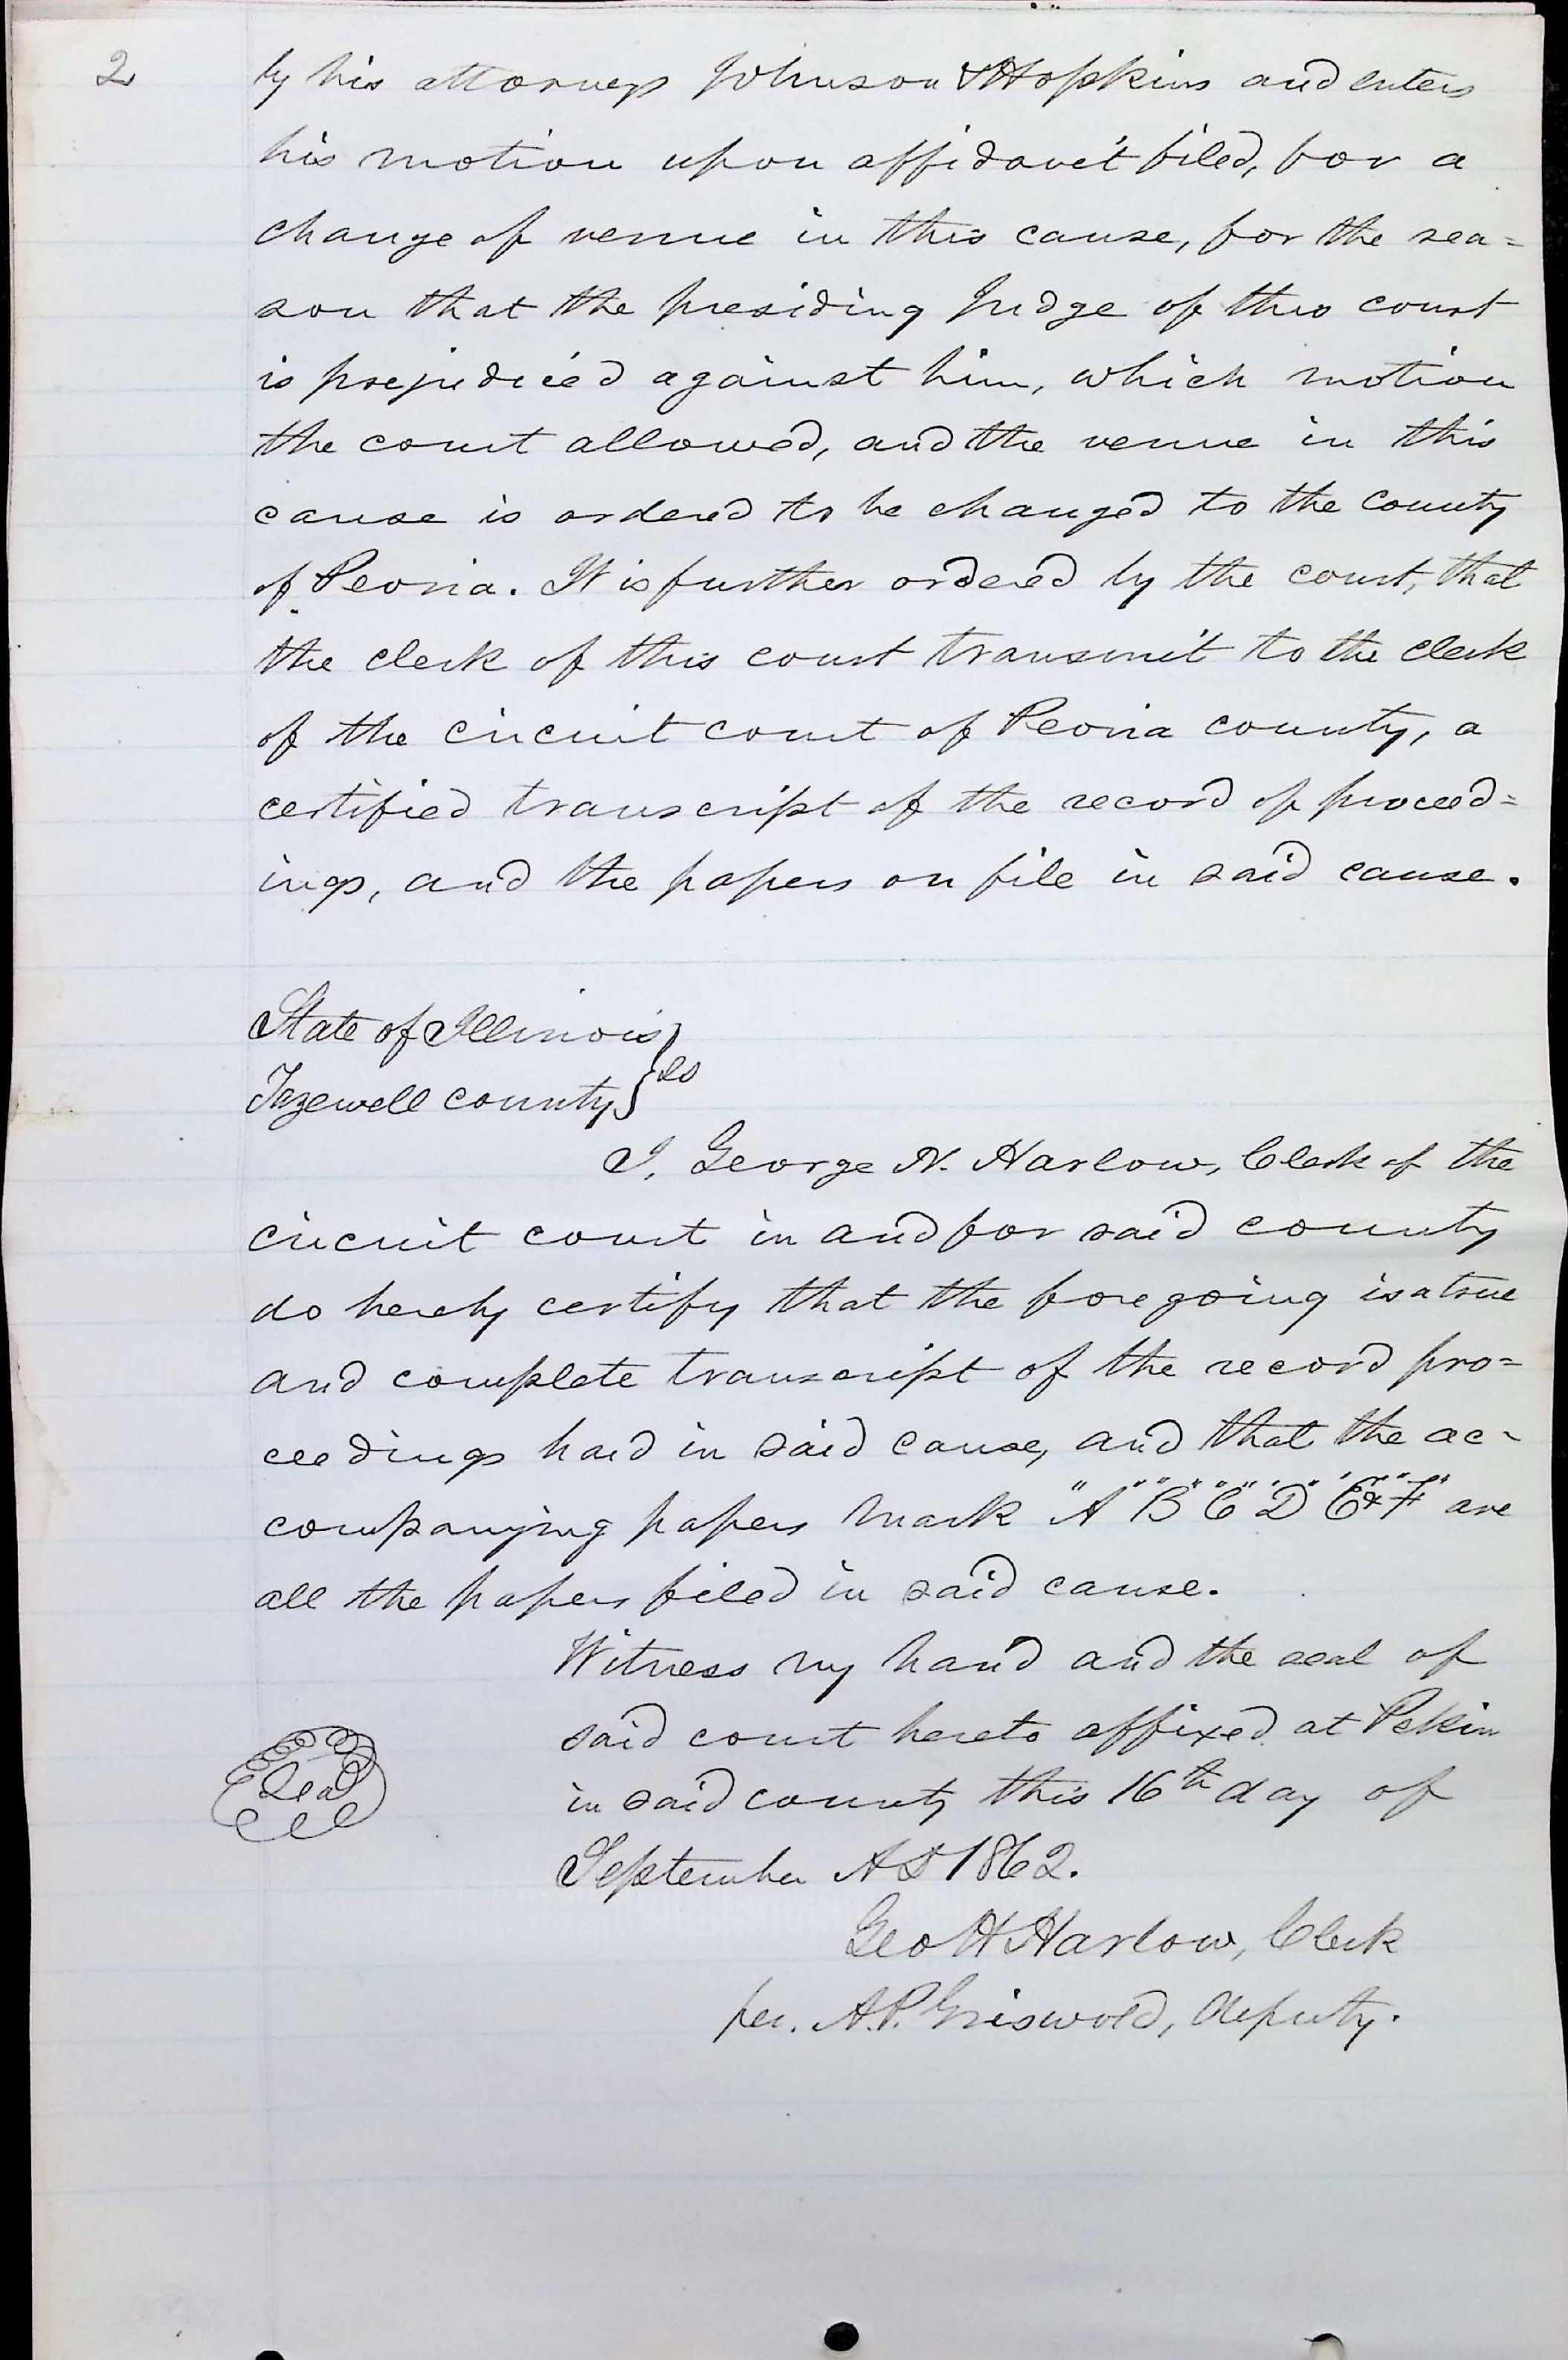 2
by his attorneys Johnson & Hopkins and enters
his motion upon affidavit filed, for a
change of venue in this cause, for the rea=
son that the presiding Judge of this court
is prejudiced against him, which motion
the court allowed, and the venue in this
cause is ordered to be changed to the county
of Peoria. It is further ordered by the court, that
the clerk of this court transmit to the clerk
of the circuit court of Peoria county, a
certified transcript of the record of proceed=
ings, and the papers on file in said cause.
State of Illinois }
Tazewell county } ss
I, George H. Harlow, Clerk of the
circuit court in and for said county
do hereby certify that the foregoing is a true
and complete transcript of the record pro=
ceedings had in said cause, and that the ac-
companying papers mark "A" "B" "C" "D" "E" & "F" are
all the papers filed in said cause.
Witness my hand and the seal of
said court hereto affixed at Pekin
in said county this 16th day of
Seal
September AD 1862.
Geo H Harlow, Clerk
per. A.P. Griswold, deputy.